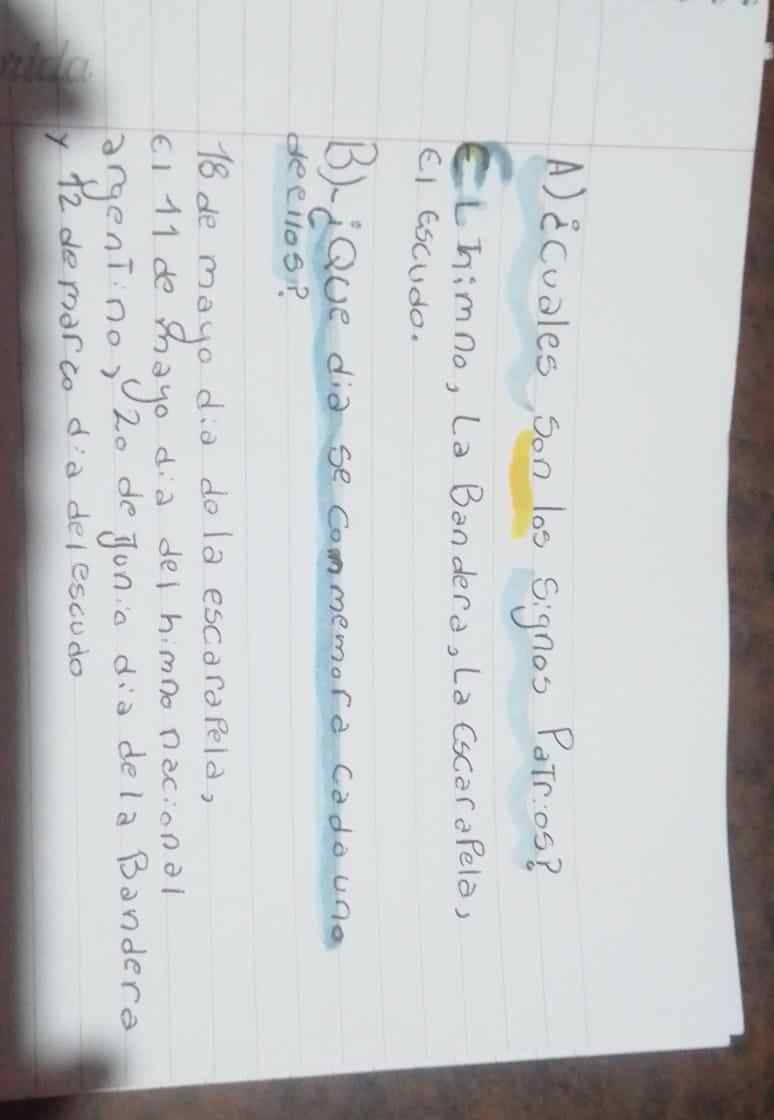 A) ¿Cuales son los signos Patrios?
EL himno, La Bandera, La escarapela,
El escudo.
B)-¿Que dia se commemora cada uno
de ellos?
18 de mayo dia de la escarapela,
El 11 de mayo dia del himno nacional
argentino, 20 de Junio dia de la Bandera
y 12 de marzo dia del escudo